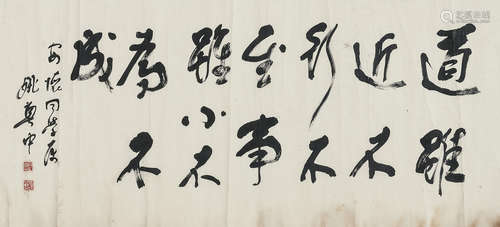 道雖
近不
行不
至事
雖小不
為不
成
安懷同學屬
姚奠中